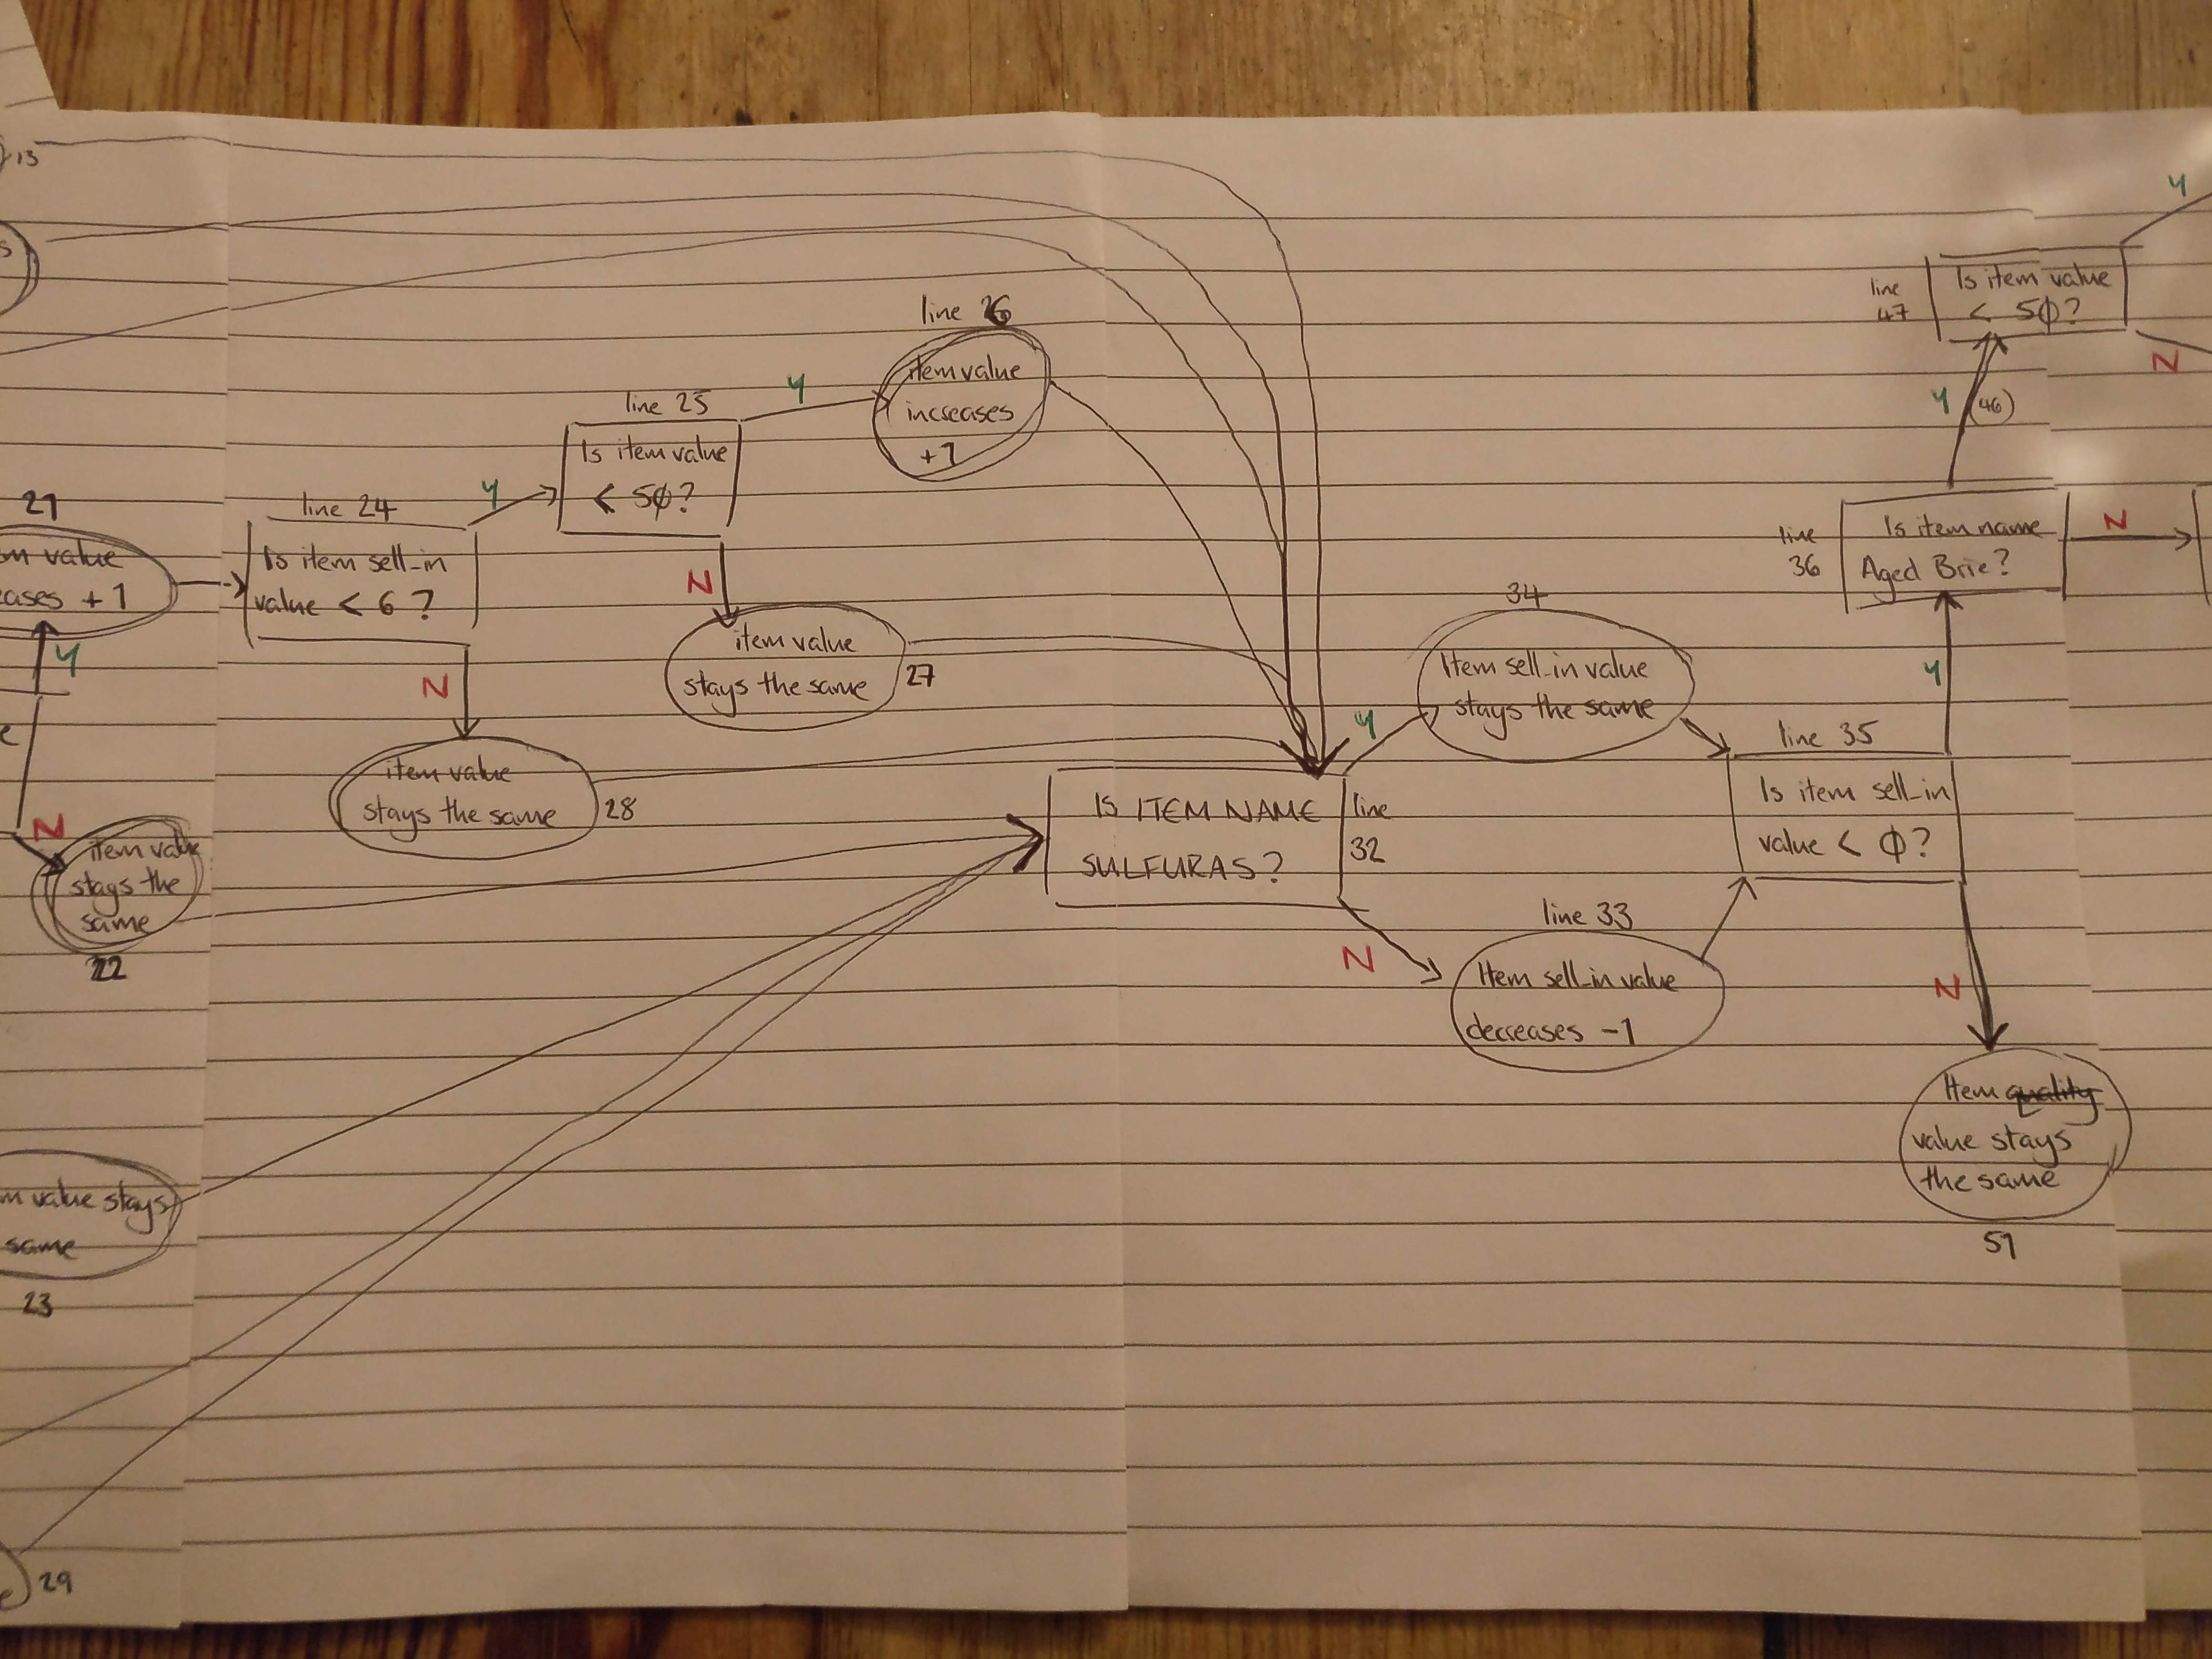 13
s
21
m value
eases + 1
Y
e
N
item value
stays the
same
22
m value stays
same
23
e
29
line 24
Is item sell-in
value < 6 ?
Y
N
item value
stays the same
28
line 25
Is item value
< 50?
Y
N
item value
stays the same
27
line 26
item value
increases
+1
IS ITEM NAME
SULFURAS?
line
32
Y
N
34
Item sell-in value
stays the same
line 33
Item sell-in value
decreases -1
line 35
Is item sell-in
value < 0?
Y
N
Item quality
value stays
the same
51
line
36
Is item name
Aged Brie?
N
Y (46)
line
47
Is item value
< 50?
Y
N